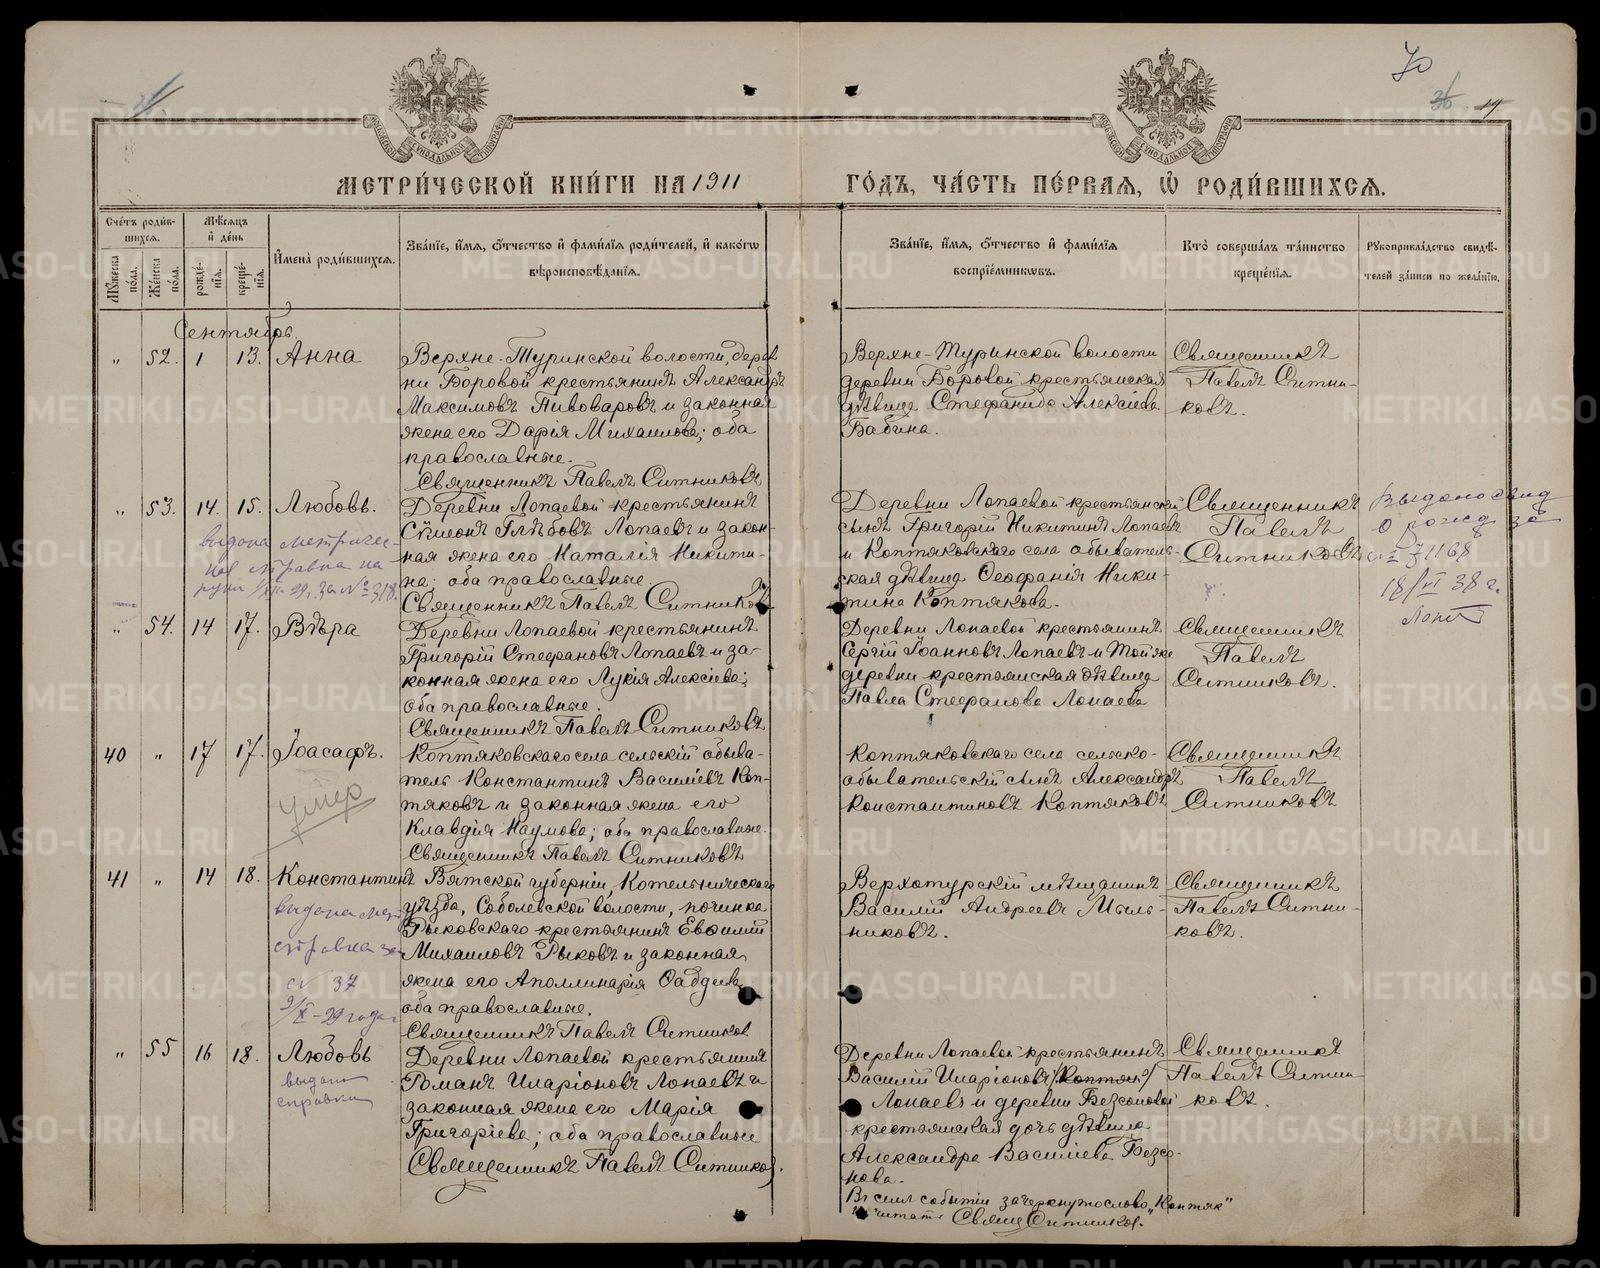 70
36
МЕТРИ́ЧЕСКОЙ КНИ́ГИ НА 1911 ГО́ДЪ, ЧА́СТЬ ПЕ́РВАЯ, Ѽ РОДИ́ВШИХСЯ.
Сче́тъ роди́вшихся.
Мѣ́сяцъ и́ де́нь
И́мена̀ роди́вшихся.
Зва́нїе, и́мя, ѻ́тчество и́ фами́лїя роди́телей, и́ како́гѡ
вѣроисповѣ́данїя.
Зва́нїе, и́мя, ѻ́тчество и́ фами́лїя
воспрїе́мникѡвъ.
Кто̀ соверша́лъ та́инство
креще́нїя.
Рꙋкоприкла́дство свидѣ́-
телей за́писи по жела́нїю.
Мꙋ́жеска по́ла.
Же́нска по́ла.
рожде́-
нїя.
креще́-
нїя.
Сентябрь
" 52. 1 13. Анна
Верхне-Туринской волости, дерев
ни Боровой крестьянинъ Александръ
Максимовъ Пивоваровъ и законная
жена его Дарія Михаилова; оба
православные.
Священникъ Павелъ Ситниковъ
Верхне-Туринской волости
деревни Боровой крестьянская
дѣвица Стефанида Алексіева
Бабина.
Священникъ
Павелъ Ситни-
ковъ.
" 53. 14. 15. Любовь.
выдана метричес-
кая справка на
руки
29. за № 318.
Деревни Лопаевой крестьянинъ
Сѵмеонъ Глѣбовъ Лопаевъ и закон-
ная жена его Наталія Никити-
на; оба православные.
Священникъ Павелъ Ситниковъ
Деревни Лопаевой крестьянскій
сынъ Григорій Никитинъ Лопаевъ
и Коптяковскаго села обыватель-
ская дѣвица Ѳеофанія Ники-
тина Коптякова.
Священникъ
Павелъ
Ситниковъ
Выдано свид
о рожд за
18/VI 38 г.
" 54. 14 17. Вѣра
Деревни Лопаевой крестьянинъ
Григорій Стефановъ Лопаевъ и за-
конная жена его Лукія Алексіева;
оба православные.
Священникъ Павелъ Ситниковъ
Деревни Лопаевой крестьянинъ
Сергій Іоанновъ Лопаевъ и той же
деревни крестьянская дѣвица
Павла Стефанова Лопаева
Священникъ
Павелъ
Ситниковъ.
40 " 17 17. Іоасафъ.
умер
Коптяковскаго села сельскій обыва-
тель Константинъ Василіевъ Коп-
тяковъ и законная жена его
Клавдія Наумова; оба православные.
Священникъ Павелъ Ситниковъ
Коптяковскаго села сельско-
обывательскій сынъ Александръ
Константиновъ Коптяковъ
Священникъ
Павелъ
Ситниковъ
41 " 14 18. Константинъ
выдана мет
справка за
№ 37
9/X-29 года
Вятской губерніи, Котельническаго
уѣзда, Соболевской волости, починка
Рыковскаго крестьянинъ Евѳимій
Михаиловъ Рыковъ и законная
жена его Аполлинарія Ѳаддеева
оба православные.
Священникъ Павелъ Ситников
Верхотурскій мѣщанинъ
Василій Андреевъ Мыль-
никовъ.
Священникъ
Павелъ Ситни-
ковъ.
" 55 16 18. Любовь
выдана
справка
Деревни Лопаевой крестьянинъ
Романъ Иларіоновъ Лопаевъ и
законная жена его Марія
Григоріева; оба православные
Священникъ Павелъ Ситников.
Деревни Лопаевой крестьянинъ
Василій Иларіоновъ /Коптяк/
Лопаевъ и деревни Безсоновой
крестьянская дочь дѣвица
Александра Василіева Безсо-
нова.
Священникъ
Павелъ Ситни-
ковъ.
Въ сей событіи зачеркнуто слово „Коптяк"
не читать Свящ Ситников.
METRIKI.GASO-URAL.RU